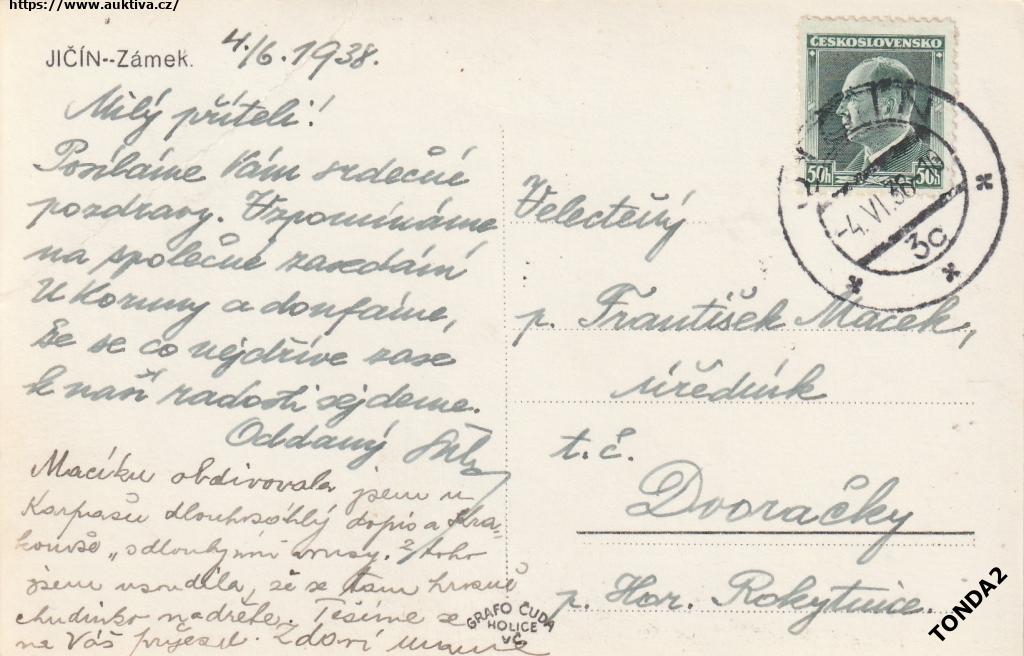 https://www.auktiva.cz/
JIČÍN--Zámek.
4./6. 1938.
Milý příteli!
Posíláme Vám srdečné
pozdravy. Vzpomínáme
na společné zasedání
U Koruny a doufáme,
že se co nejdříve zase
k naší radosti sejdeme.
Oddaný
Macíku obdivovala jsem u
Karpašů dlouhosáhlý dopis a Kra-
konoše „s dlouhými vousy. Z toho
jsem usoudila, že se tam hrozně
chudinko nadřete. Těšíme se
na Váš příjezd. Zdraví
ČESKOSLOVENSKO
50h 50h
JIČÍN
-4.VI.38
3c
Velectěný
p. František Macek,
úředník
t. č.
Dvoračky
p. Hor. Rokytnice.
GRAFO ČUDA
HOLICE
VČ
TONDA2